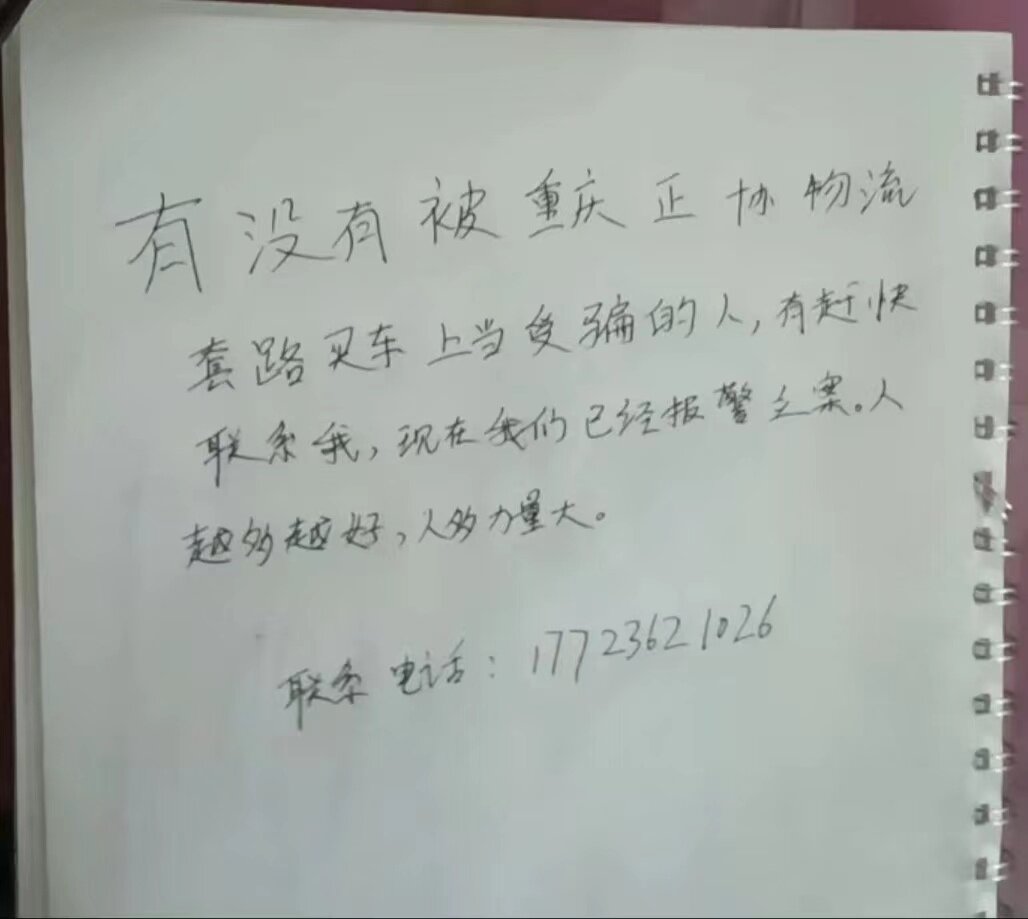 有没有被重庆正协物流
套路买车上当受骗的人,有赶快
联系我,现在我们已经报警立案。人
越多越好,人多力量大。
联系电话:17723621026